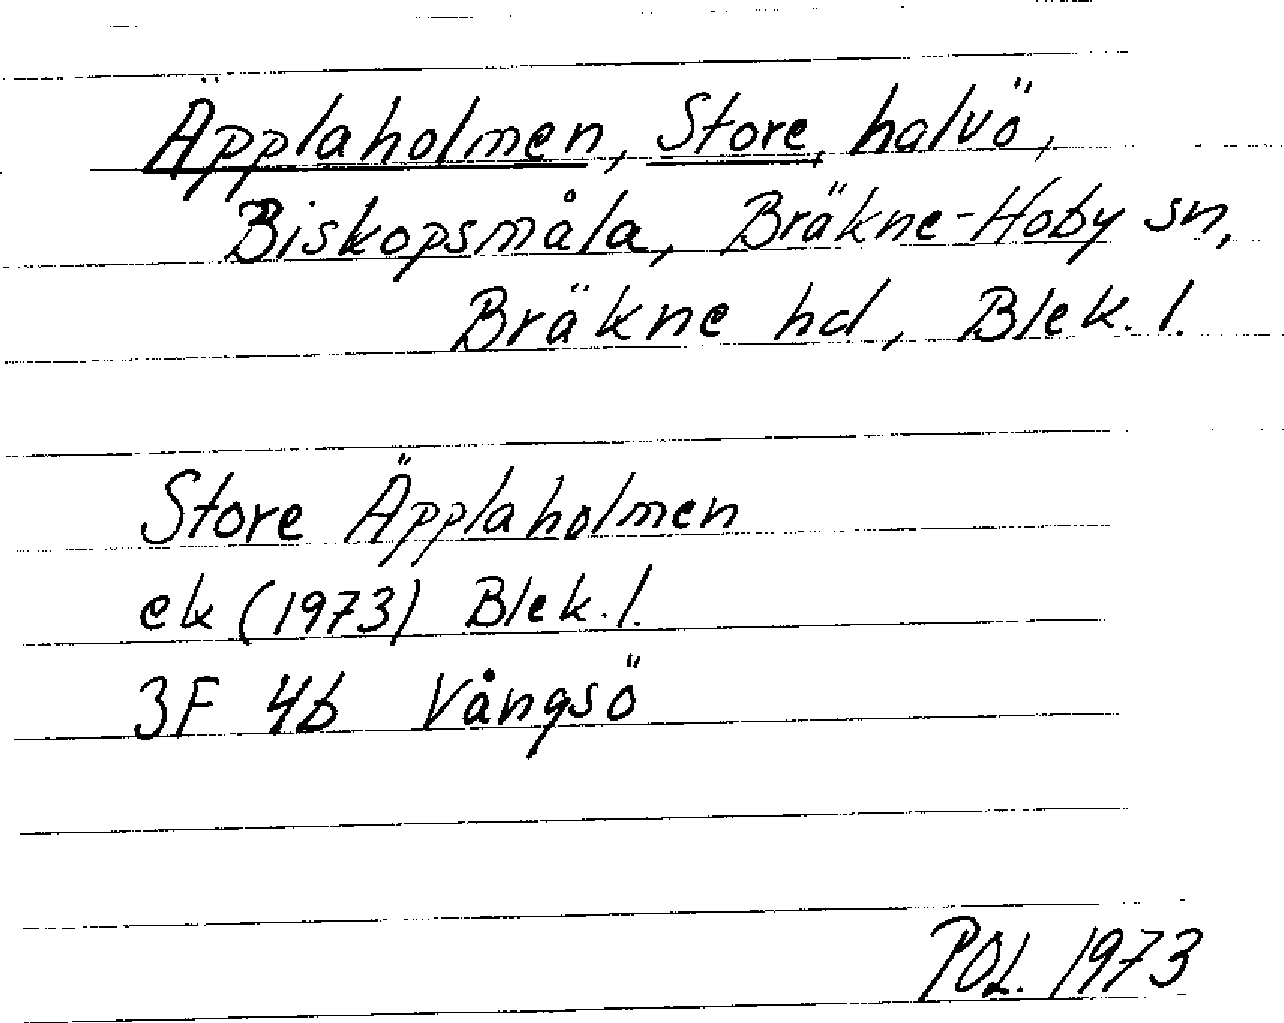 Äpplaholmen, Store, halvö,
Biskopsmåla, Bräkne-Hoby sn,
Bräkne hd, Blek. l.
Store Äpplaholmen
ek (1973) Blek. l.
3F 4b Vångsö
POL. 1973